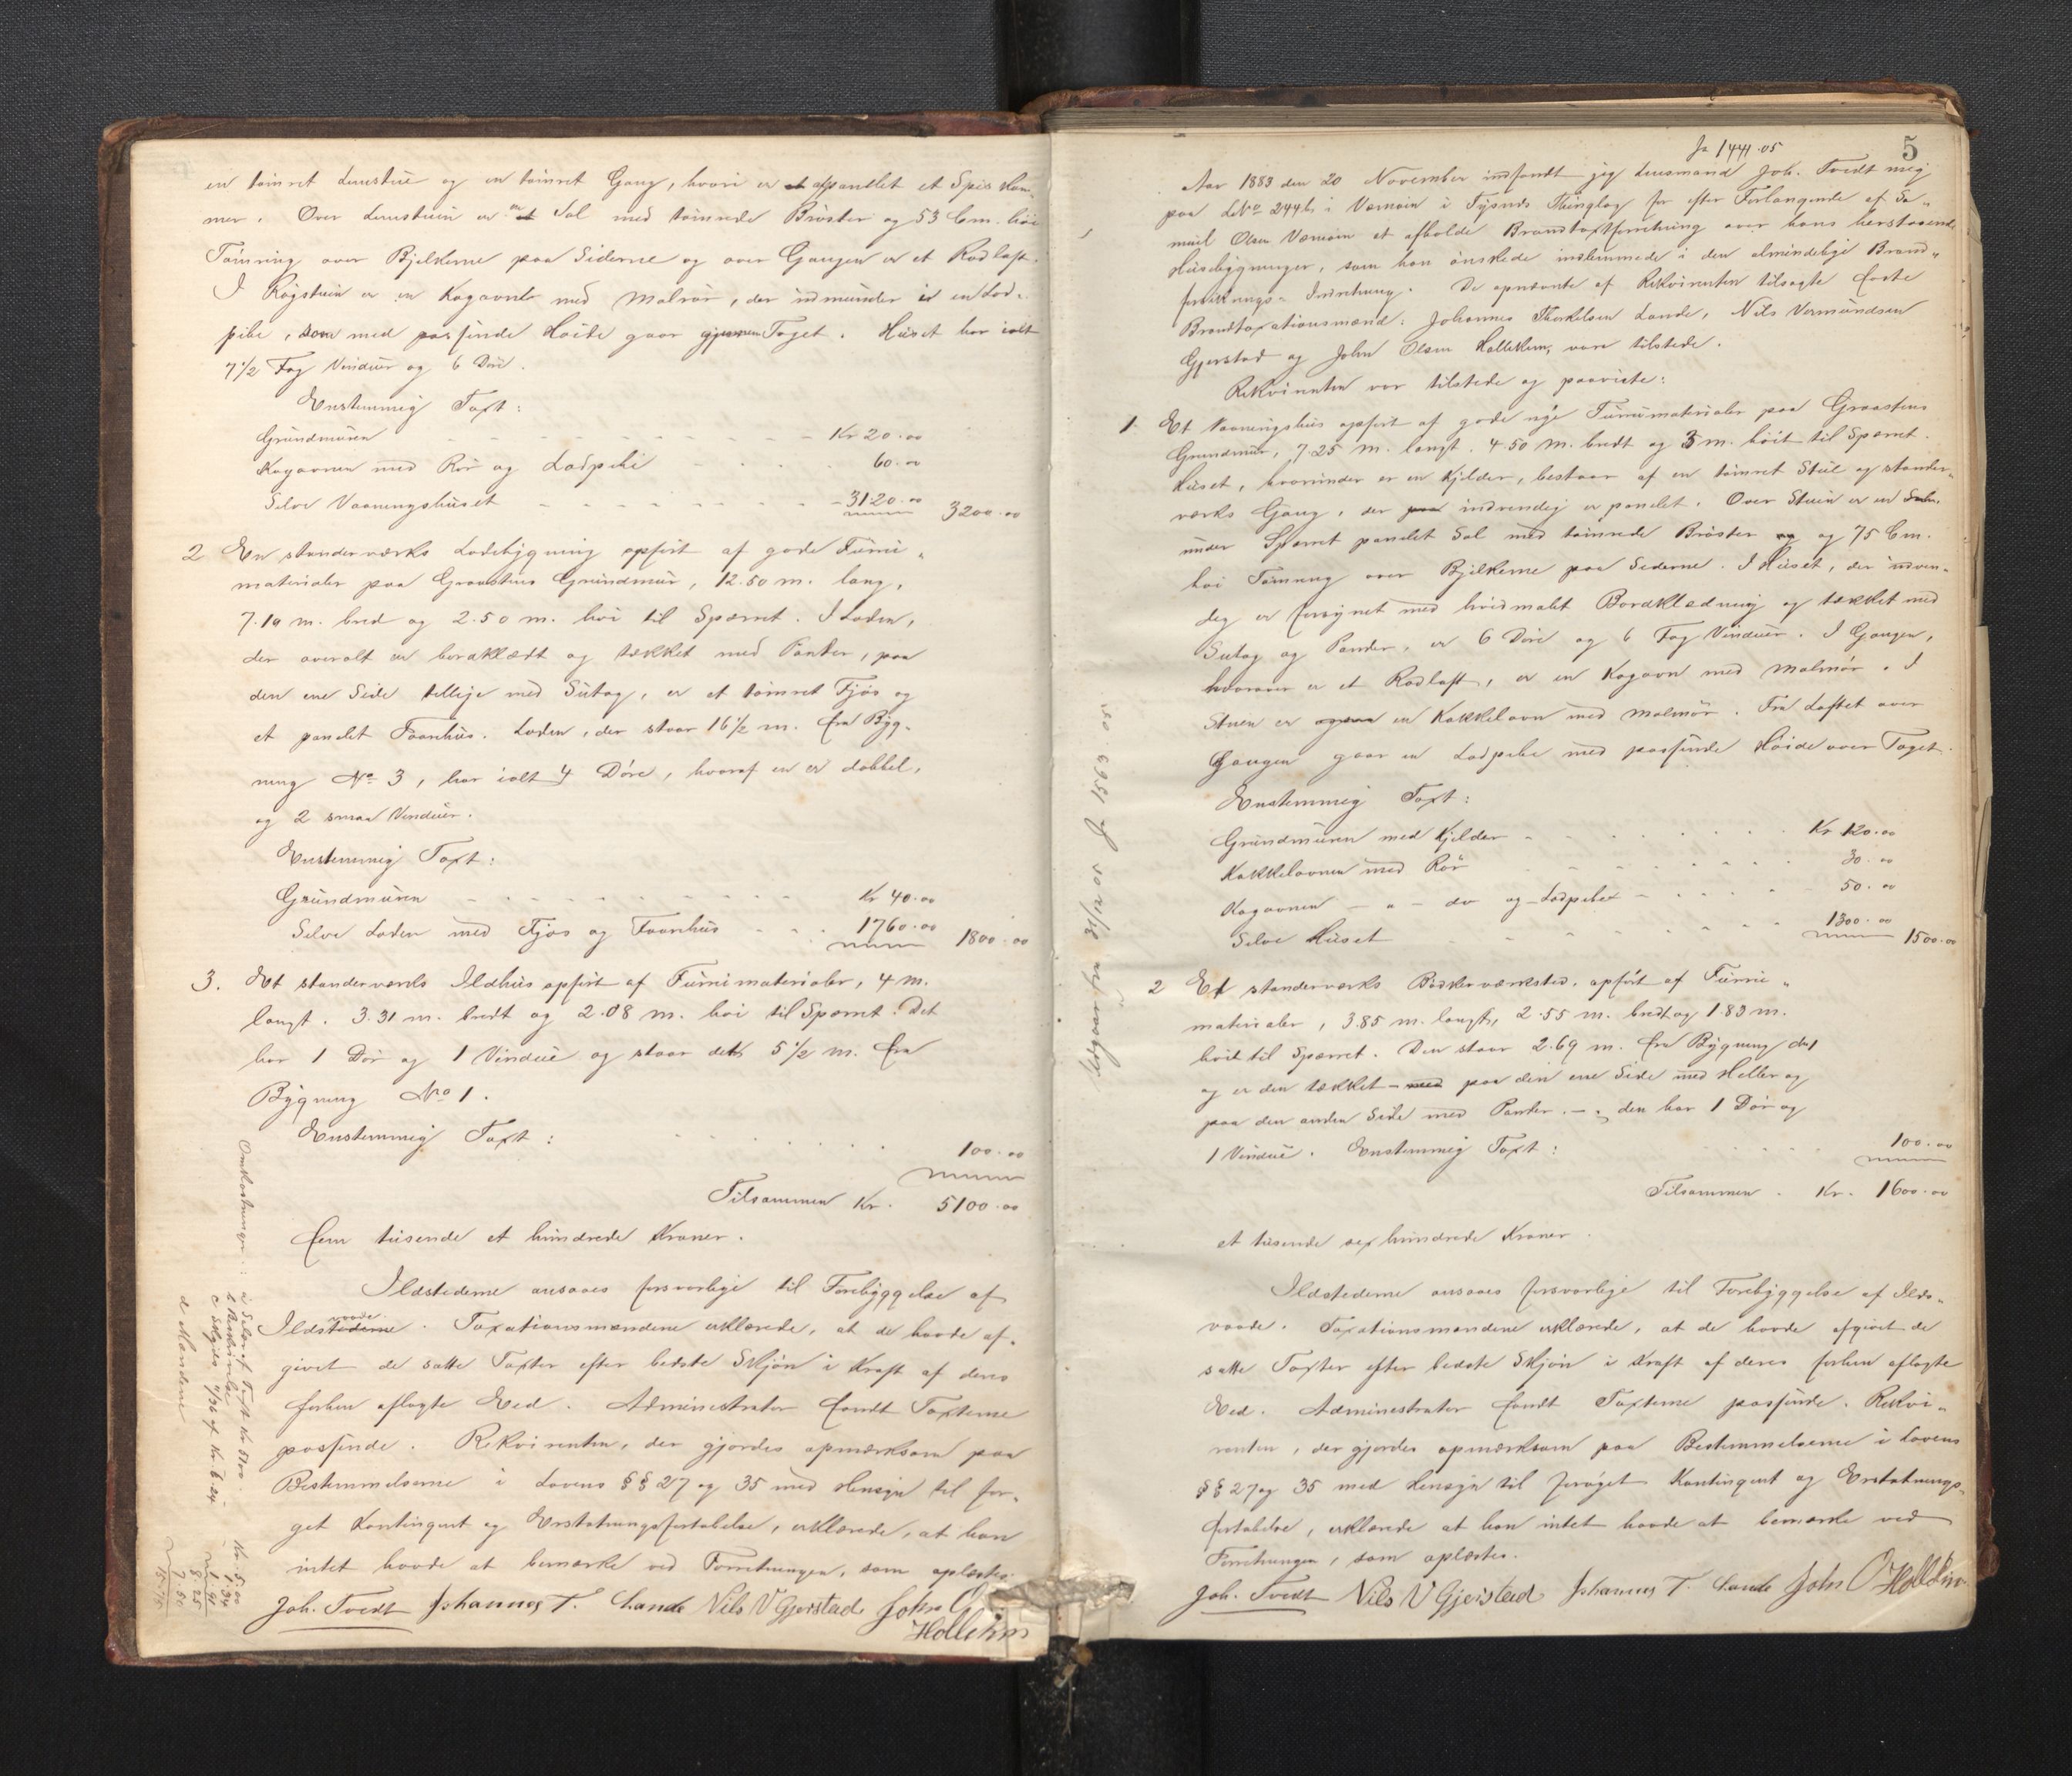 en tømret Lemstue og en tømret Gang, hvori er afpanelet et Spiskam-
mer. Over Lemstuen er en Sal med tømrede Brøster og 53 Cm. høi
Tømring over Bjelkerne paa Siderne og over Gangen er et Rødloft.
I Røgstuen er en Kogeovn med Malmrør, der indmunder i en Lod-
pibe, som med passende Høide gaar gjennem Taget. Huset har ialt
7 1/2 Fag Vinduer og 6 Døre.
Enstemmig Taxt:
Grundmuren Kr 20.00
Kogeovnen med Rør og Lodpibe 60.00
Selve Vaaningshuset 3120.00 3200.00
2 En standerværks Ladebygning opført af gode Furru-
materialer paa Graastens Grundmur, 12.50 m. lang,
7.10 m. bred og 2.50 m. høi til Sparret. I Laden,
der overalt er bordklædt og tækket med Panter, paa
den ene Side tillige med Sutag, er et tømret Fjøs og
et panelet Faarehus. Laden, der staar 16 1/2 m. fra Byg-
ning No 3, har ialt 4 Døre, hvoraf en er dobbel,
og 2 smaa Vinduer.
Enstemmig Taxt:
Grundmuren Kr 40.00
Selve Laden med Fjøs og Faarehus 1760.00 1800.00
3. Et standerværks Ildhus opført af Furrumaterialer, 4 m.
langt. 3.31 m. bredt og 2.08 m. høi til Sparret. Det
har 1 Dør og 1 Vindue og staar det 5 1/2 m. fra
Bygning No 1.
Enstemmig Taxt: 100.00
Tilsammen Kr. 5100.00
fem tusende et hundrede Kroner.
Ildstederne ansaaes forsvarlige til Forebyggelse af
Ildsvaade. Taxationsmændene erklærede, at de havde af-
givet de satte Taxter efter bedste Skjøn i Kraft af deres
forhen aflagte Eed. Administrator fandt Taxterne
passende. Rekvirenten, der gjordes opmærksom paa
Bestemmelserne i Lovens §§ 27 og 35 med Hensyn til for-
get Kontingent og Erstatningsfortabelse, erklærede, at han
intet havde at bemærke ved Forretningen, som oplæstes.
Joh. Tvedt Johannes T. Lande Nils V Gjerstad John O
Hollekim
Omkostninger:
a Gebyr af Taxt Kr 5100. Kr. 5.00
d Mændene 7.50
Ja 1441.05
5
Aar 1883 den 20 November indfandt jeg Lensmand Joh. Tvedt mig
paa LNo 244b i Værnøin i Tysnes Thinglag for efter Forlangende af Sa-
muel Olsen Værnøin at afholde Brandtaxtforretning over hans herstaaende
Husebygninger, som han ønskede indlemmede i den almindelige Brand-
forsikrings-Indretning. De opnævnte af Rekvirenten tilsagte faste
Brandtaxationsmænd: Johannes Therkelsen Lande, Nils Vermundsen
Gjerstad og John Olsen Hollekim, vare tilstede.
Rekvirenten var tilstede og paaviste:
1. Et Vaaningshus opført af gode nye Furrumaterialer paa Graastens
Grundmur, 7.25 m. langt. 4.50 m. bredt og 3 m. høit til Sparret.
Huset, hvorunder er en Kjelder, bestaar af en tømret Stue og stander-
værks Gang, der indvendig er panelet. Over Stuen er en
under Sparret panelet Sal med tømrede Brøster og 75 Cm.
høi Tømring over Bjelkerne paa Siderne. I Huset, der udven-
dig er forsynet med hvidmalet Bordklædning og tækket med
Sutag og Panter, er 6 Døre og 6 Fag Vinduer. I Gangen,
hvorover er et Rødloft, er en Kogeovn med Malmrør. I
Stuen er en Kakkelovn med Malmrør. Fra Loftet over
Gangen gaar en Lodpibe med passende Høide over Taget.
Enstemmig Taxt:
Grundmuren med Kjelder Kr 120.00
Kakkelovnen med Rør 30.00
Kogeovnen – " – do og Lodpibe 50.00
Selve Huset 1300.00 1500.00
2 Et standerværks Bødkerværksted, opført af Furru-
materialer, 3.85 m. langt, 2.55 m. bredt og 1.83 m.
høit til Sparret. Den staar 2.69 m. fra Bygning No 1
og er den tækket paa den ene Side med Heller og
paa den anden Side med Panter. – den har 1 Dør og
1 Vindue. Enstemmig Taxt: 100.00
Tilsammen Kr. 1600.00
et tusende sex hundrede Kroner.
Ildstederne ansaaes forsvarlige til Forebyggelse af Ilds-
vaade. Taxationsmændene erklærede, at de havde afgivet de
satte Taxter efter bedste Skjøn i Kraft af deres forhen aflagte
Eed. Administrator fandt Taxterne passende. Rekvi-
renten, der gjordes opmærksom paa Bestemmelserne i Lovens
§§ 27 og 35 med Hensyn til forøget Kontingent og Erstatnings-
fortabelse, erklærede at han intet havde at bemærke ved
Forretningen, som oplæstes.
Joh. Tvedt Nils V Gjerstad Johannes T. Lande John O Hollekim
Udgaar fra 31/12 05 Ja 1563.05